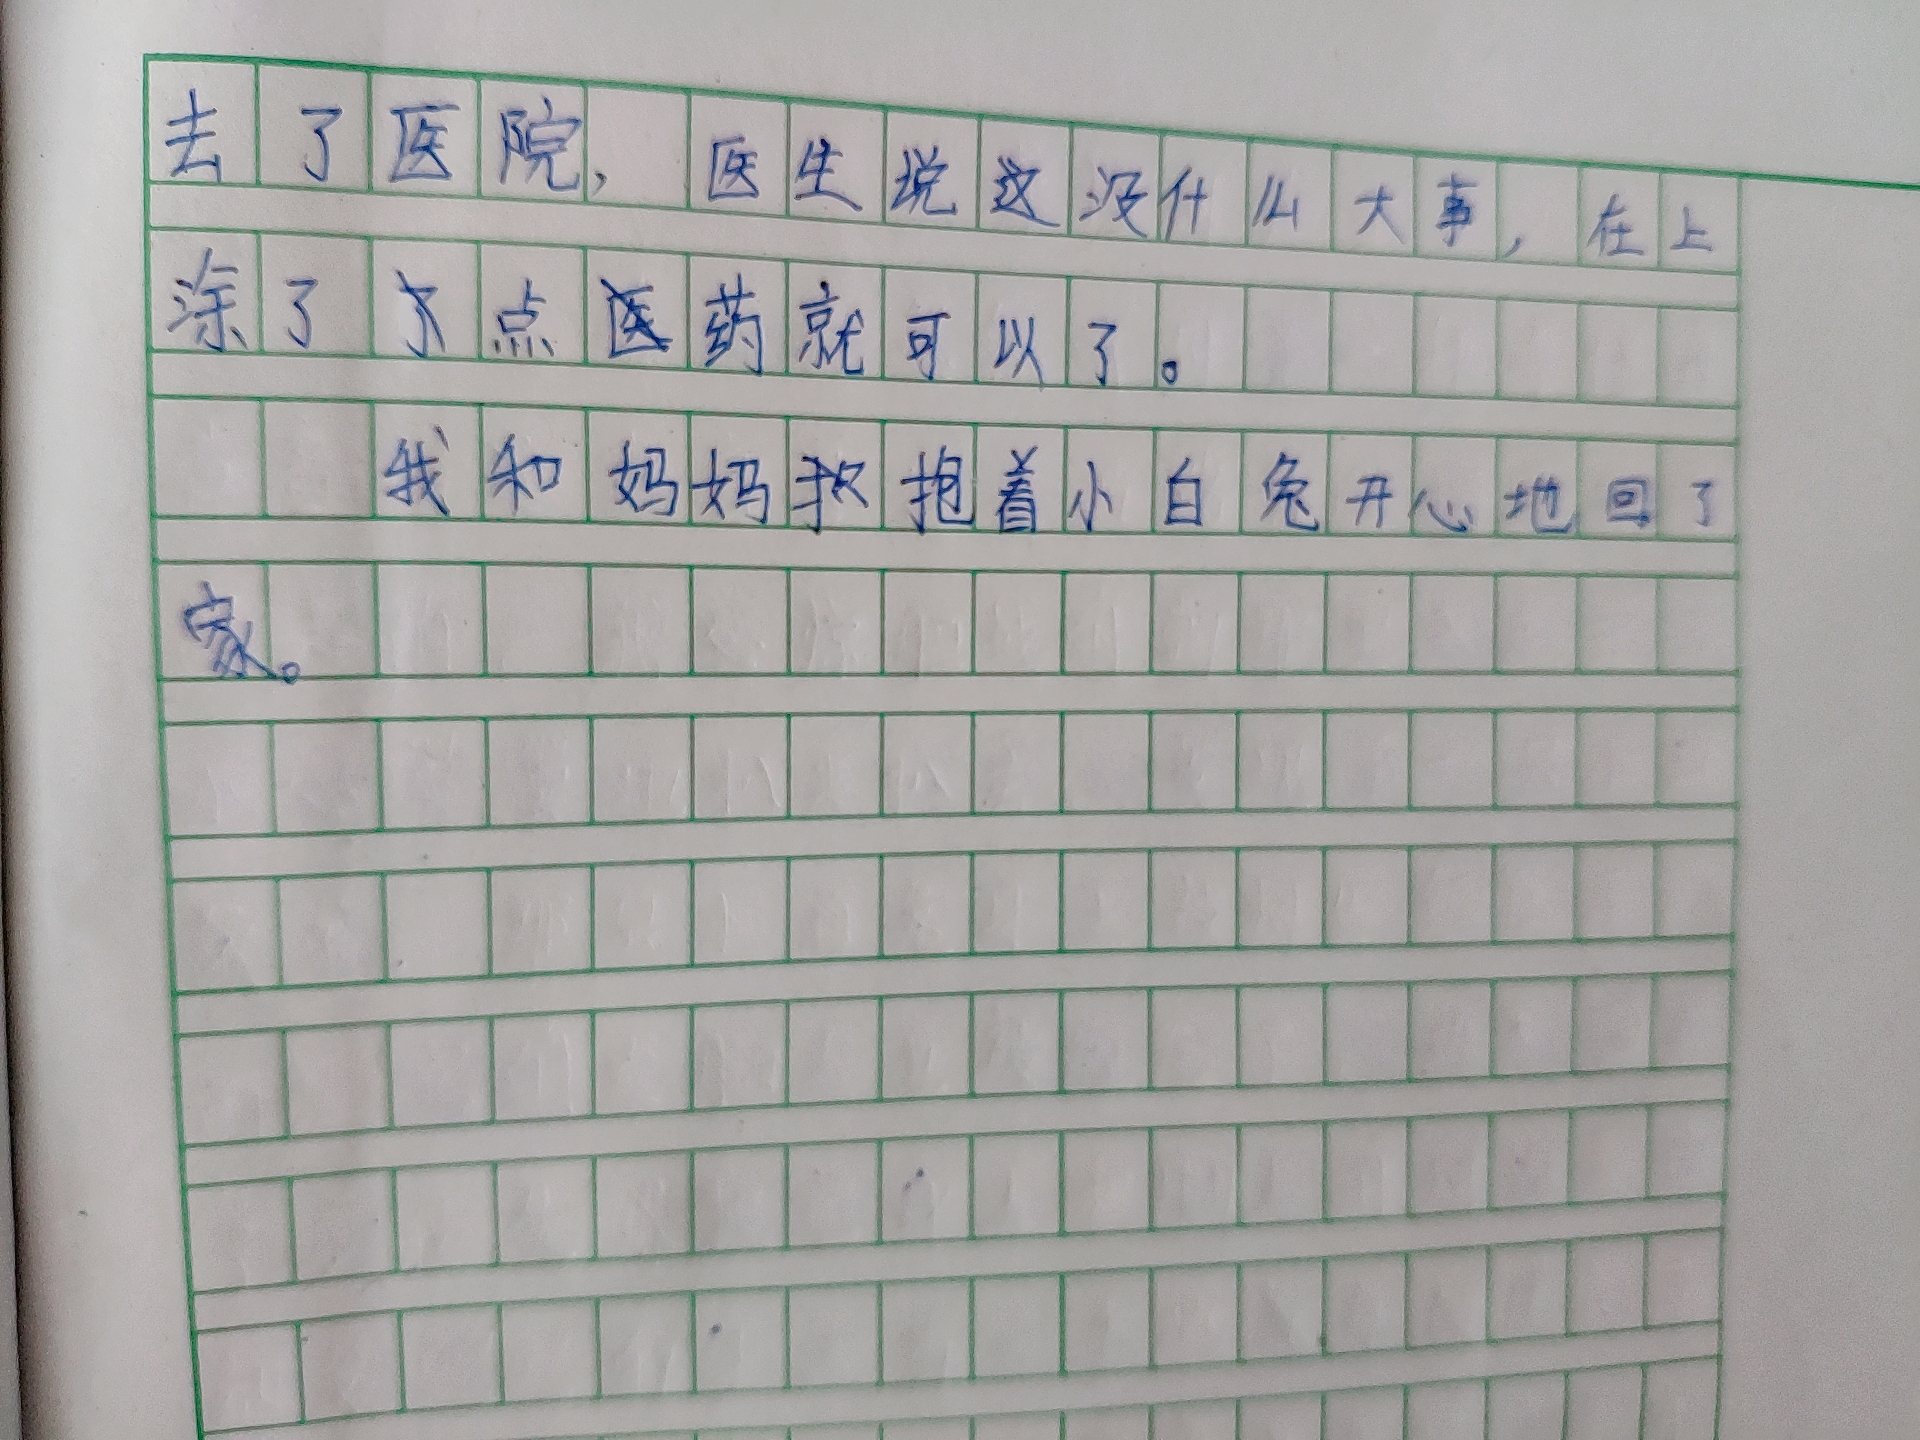 去了医院，医生说这没什么大事，在上
涂了点药就可以了。
我和妈妈抱着小白兔开心地回了
家。